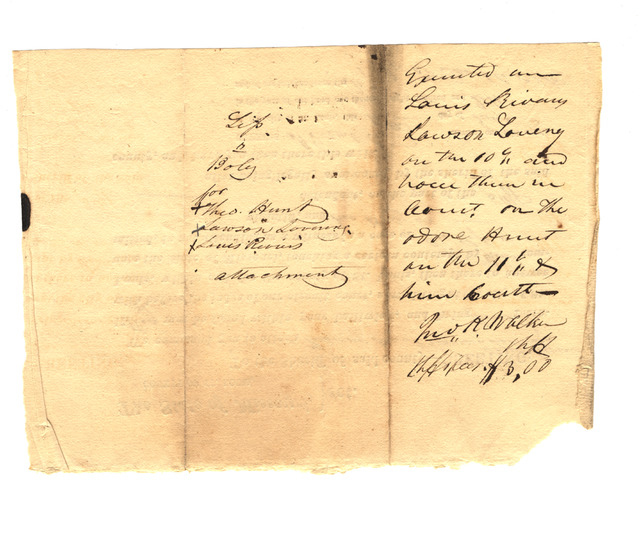 for
Theo. Hunt
Lawson Lovering
Louis Rivirs
attachment
Executed on
Louis Rivars
Lawson Loveng
on the 10th and
have them in
Court. on The
odore Hunt
on the 11th &
him Courtt
Jno. K. Walker
Shff
Shffs fees $3,00